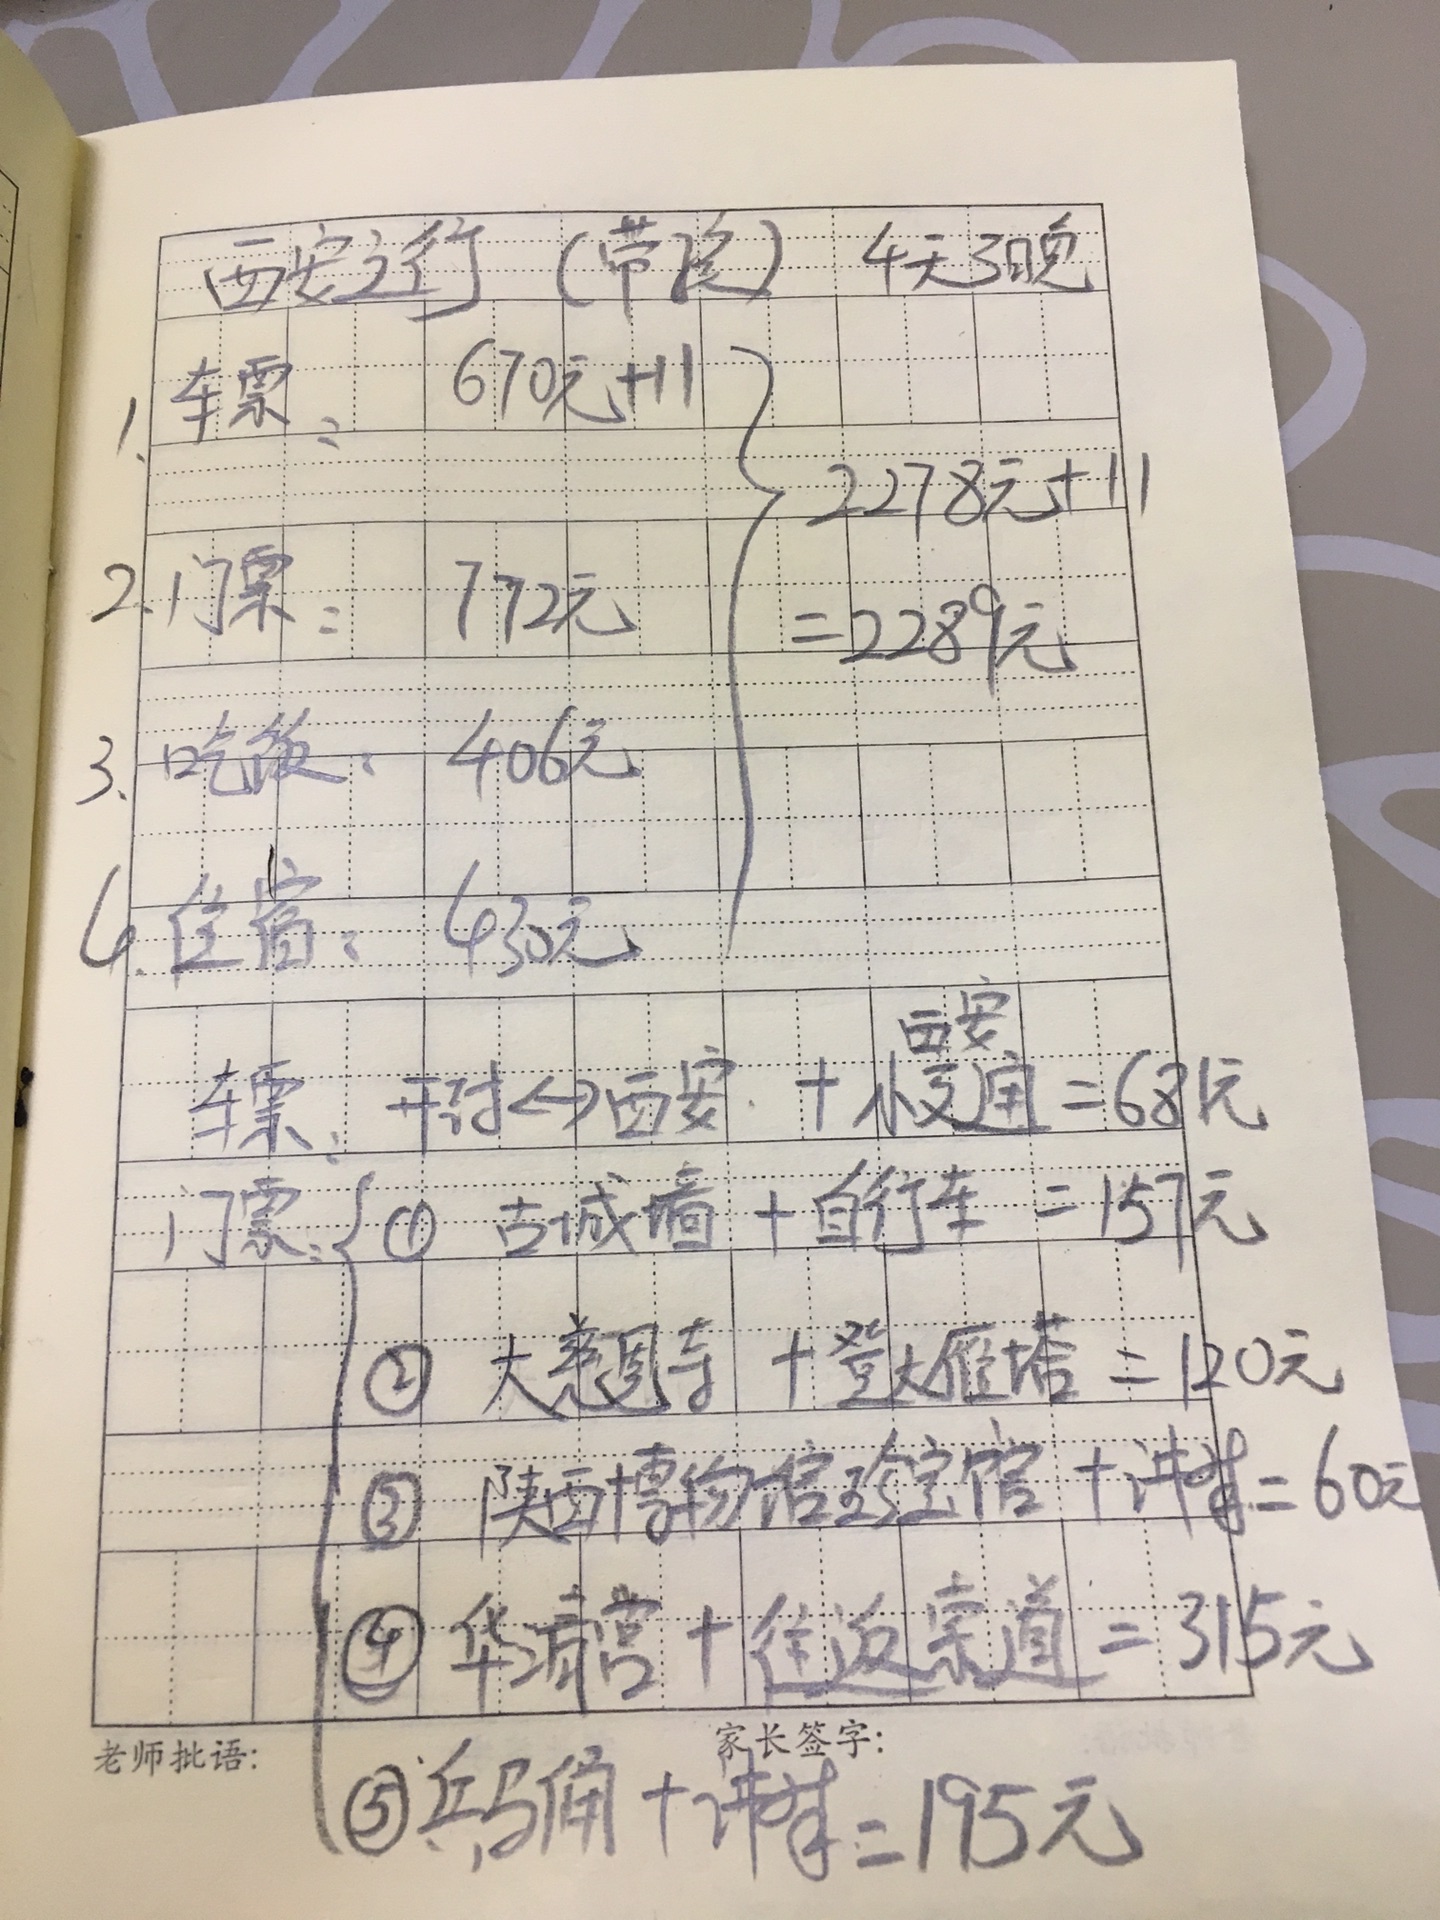 西安之行（带孩） 4天3晚
1. 车票： 670元+11
2278元+11
2. 门票： 772元
=2289元
3. 吃饭： 406元
4. 住宿： 430元
西安
车票： 开封<->西安 + 小交通 = 681元
门票：① 古城墙 + 自行车 = 157元
② 大慈恩寺 + 登大雁塔 = 120元
③ 陕西博物馆珍宝馆 + 讲解 = 60元
④ 华清宫 + 往返索道 = 315元
老师批语： 家长签字：
⑤ 兵马俑 + 讲解 = 195元